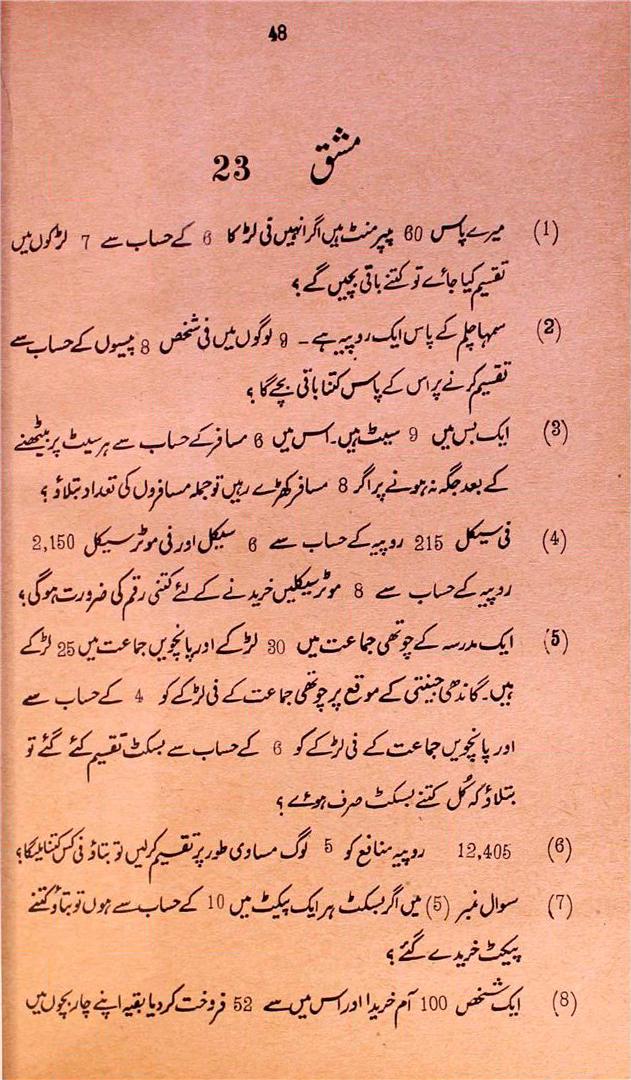 48
مشق 23
(1) میرے پاس 60 پیپرمنٹ ہیں اگر انہیں فی لڑکا 6 کے حساب سے 7 لڑکوں میں
تقسیم کیا جائے تو کتنے باقی بچیں گے؟
(2) سمہاچلم کے پاس ایک روپیہ ہے۔ 9 لوگوں میں فی شخص 8 پیسوں کے حساب سے
تقسیم کرنے پر اس کے پاس کتنا باقی بچے گا؟
(3) ایک بس میں 9 سیٹ ہیں۔ اس میں 6 مسافر کے حساب سے ہر سیٹ پر بیٹھنے
کے بعد جگہ نہ ہونے پر اگر 8 مسافر کھڑے رہیں تو جملہ مسافروں کی تعداد بتلاؤ؟
(4) فی سیکل 215 روپیہ کے حساب سے 6 سیکل اور فی موٹر سیکل 2,150
روپیہ کے حساب سے 8 موٹر سیکلیں خریدنے کے لئے کتنی رقم کی ضرورت ہوگی؟
(5) ایک مدرسہ کے چوتھی جماعت میں 30 لڑکے اور پانچویں جماعت میں 25 لڑکے
ہیں۔ گاندھی جینتی کے موقع پر چوتھی جماعت کے فی لڑکے کو 4 کے حساب سے
اور پانچویں جماعت کے فی لڑکے کو 6 کے حساب سے بسکٹ تقسیم کئے گئے تو
بتلاؤ کہ کُل کتنے بسکٹ صرف ہوئے؟
(6) 12,405 روپیہ منافع کو 5 لوگ مساوی طور پر تقسیم کرلیں تو بتاؤ فی کس کتنا ملیگا؟
(7) سوال نمبر (5) میں اگر بسکٹ ہر ایک پیکٹ میں 10 کے حساب سے ہوں تو بتاؤ کتنے
پیکٹ خریدے گئے؟
(8) ایک شخص 100 آم خریدا اور اس میں سے 52 فروخت کردیا بقیہ اپنے چار بچوں میں